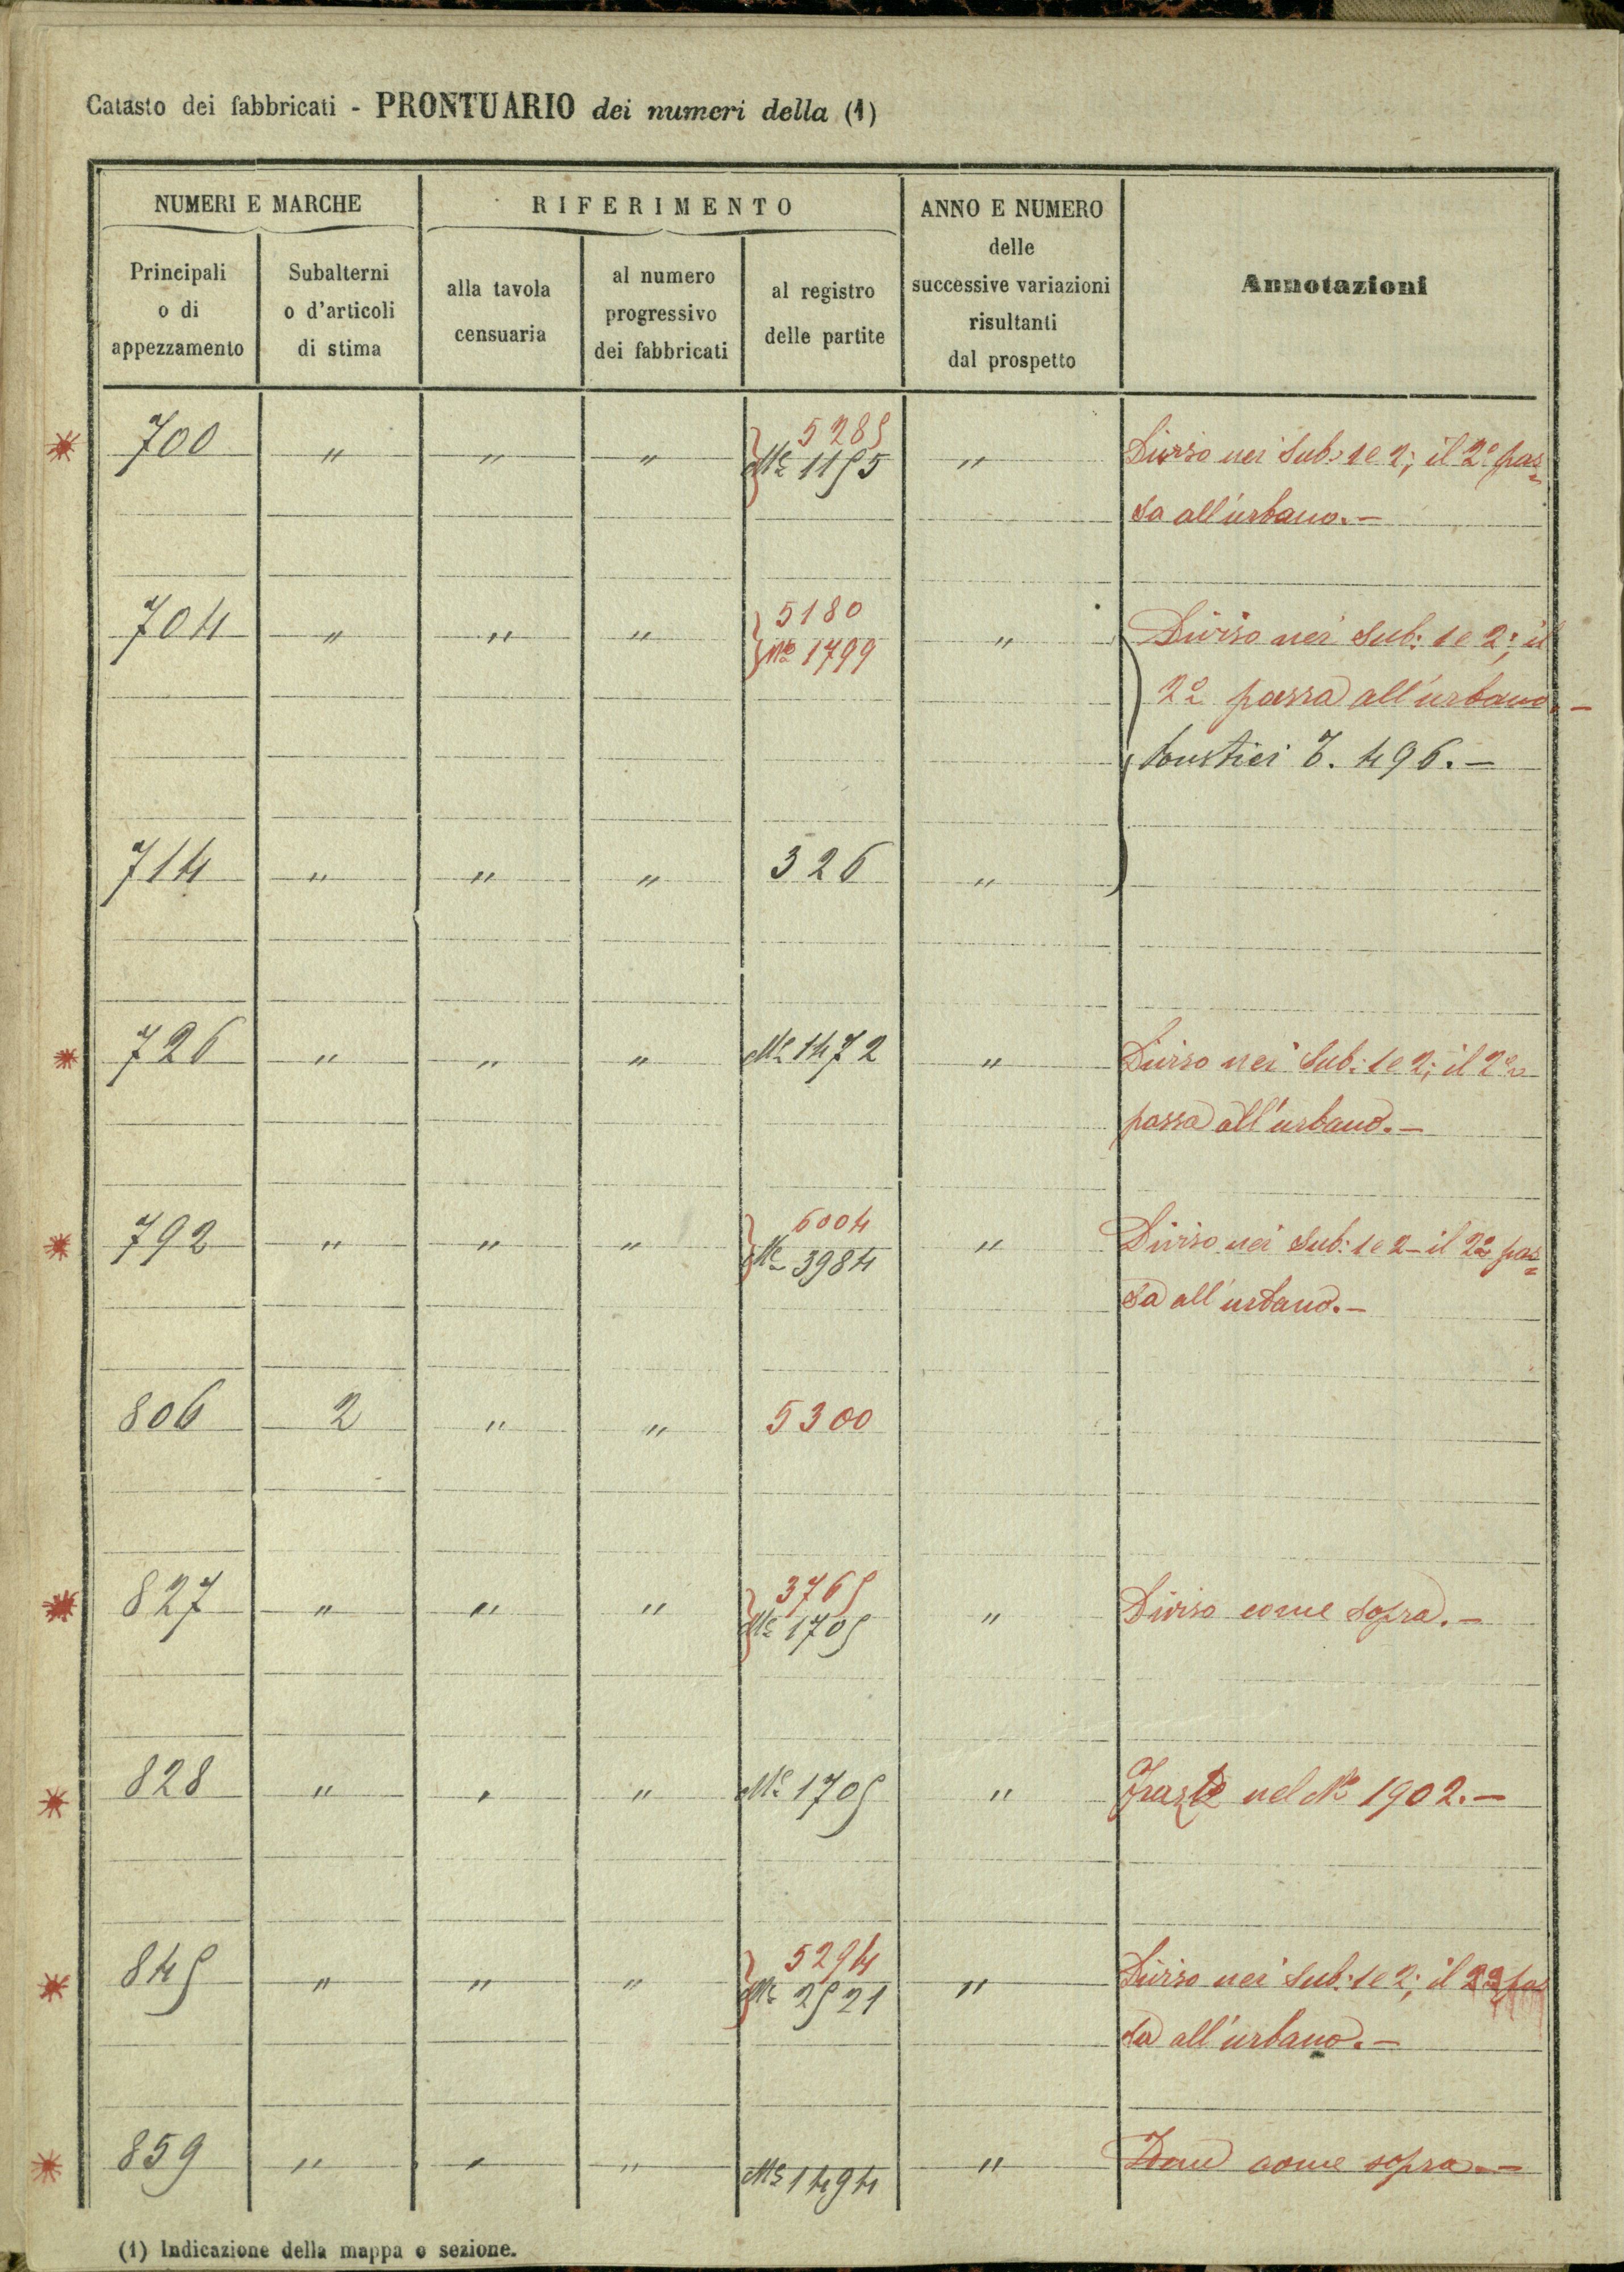 Catasto dei fabbricati - PRONTUARIO dei numeri della (1)
NUMERI E MARCHE
RIFERIMENTO
ANNO E NUMERO
delle
successive variazioni
risultanti
dal prospetto
Annotazioni
Principali
o di
appezzamento
Subalterni
o d'articoli
di stima
alla tavola
censuaria
al numero
progressivo
dei fabbricati
al registro
delle partite
5289
700 " " " Me 1195 " Diviso nei Sub: 1 e 2; il 2º pas=
sa all'urbano.-
5180
704 " " " Me 1799 " Diviso nei Sub: 1 e 2; il
2º passa all'urbano.-
T. 496.-
714 " " " 326 "
726 " " " Me 1472 " Diviso nei Sub: 1 e 2; il 2º
passa all'urbano.-
6004
792 " " " Me 3984 " Diviso nei Sub: 1 e 2 - il 2º pas=
sa all'urbano.-
806 2 " " 5300
3769
827 " " " Me 1709 " Diviso come sopra.-
828 " " " Me 1709 " nel Nº 1902.-
5294
849 " " " Me 2921 " Diviso nei Sub: 1 e 2; il 2º pas
sa all'urbano.-
859 " " " Me 1494 " Idem come sopra.-
(1) Indicazione della mappa o sezione.